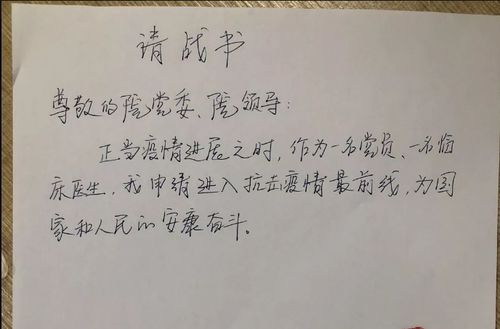 请战书
尊敬的院党委、院领导：
正当疫情进展之时，作为一名党员、一名临
床医生，我申请进入抗击疫情最前线，为国
家和人民的安康奋斗。